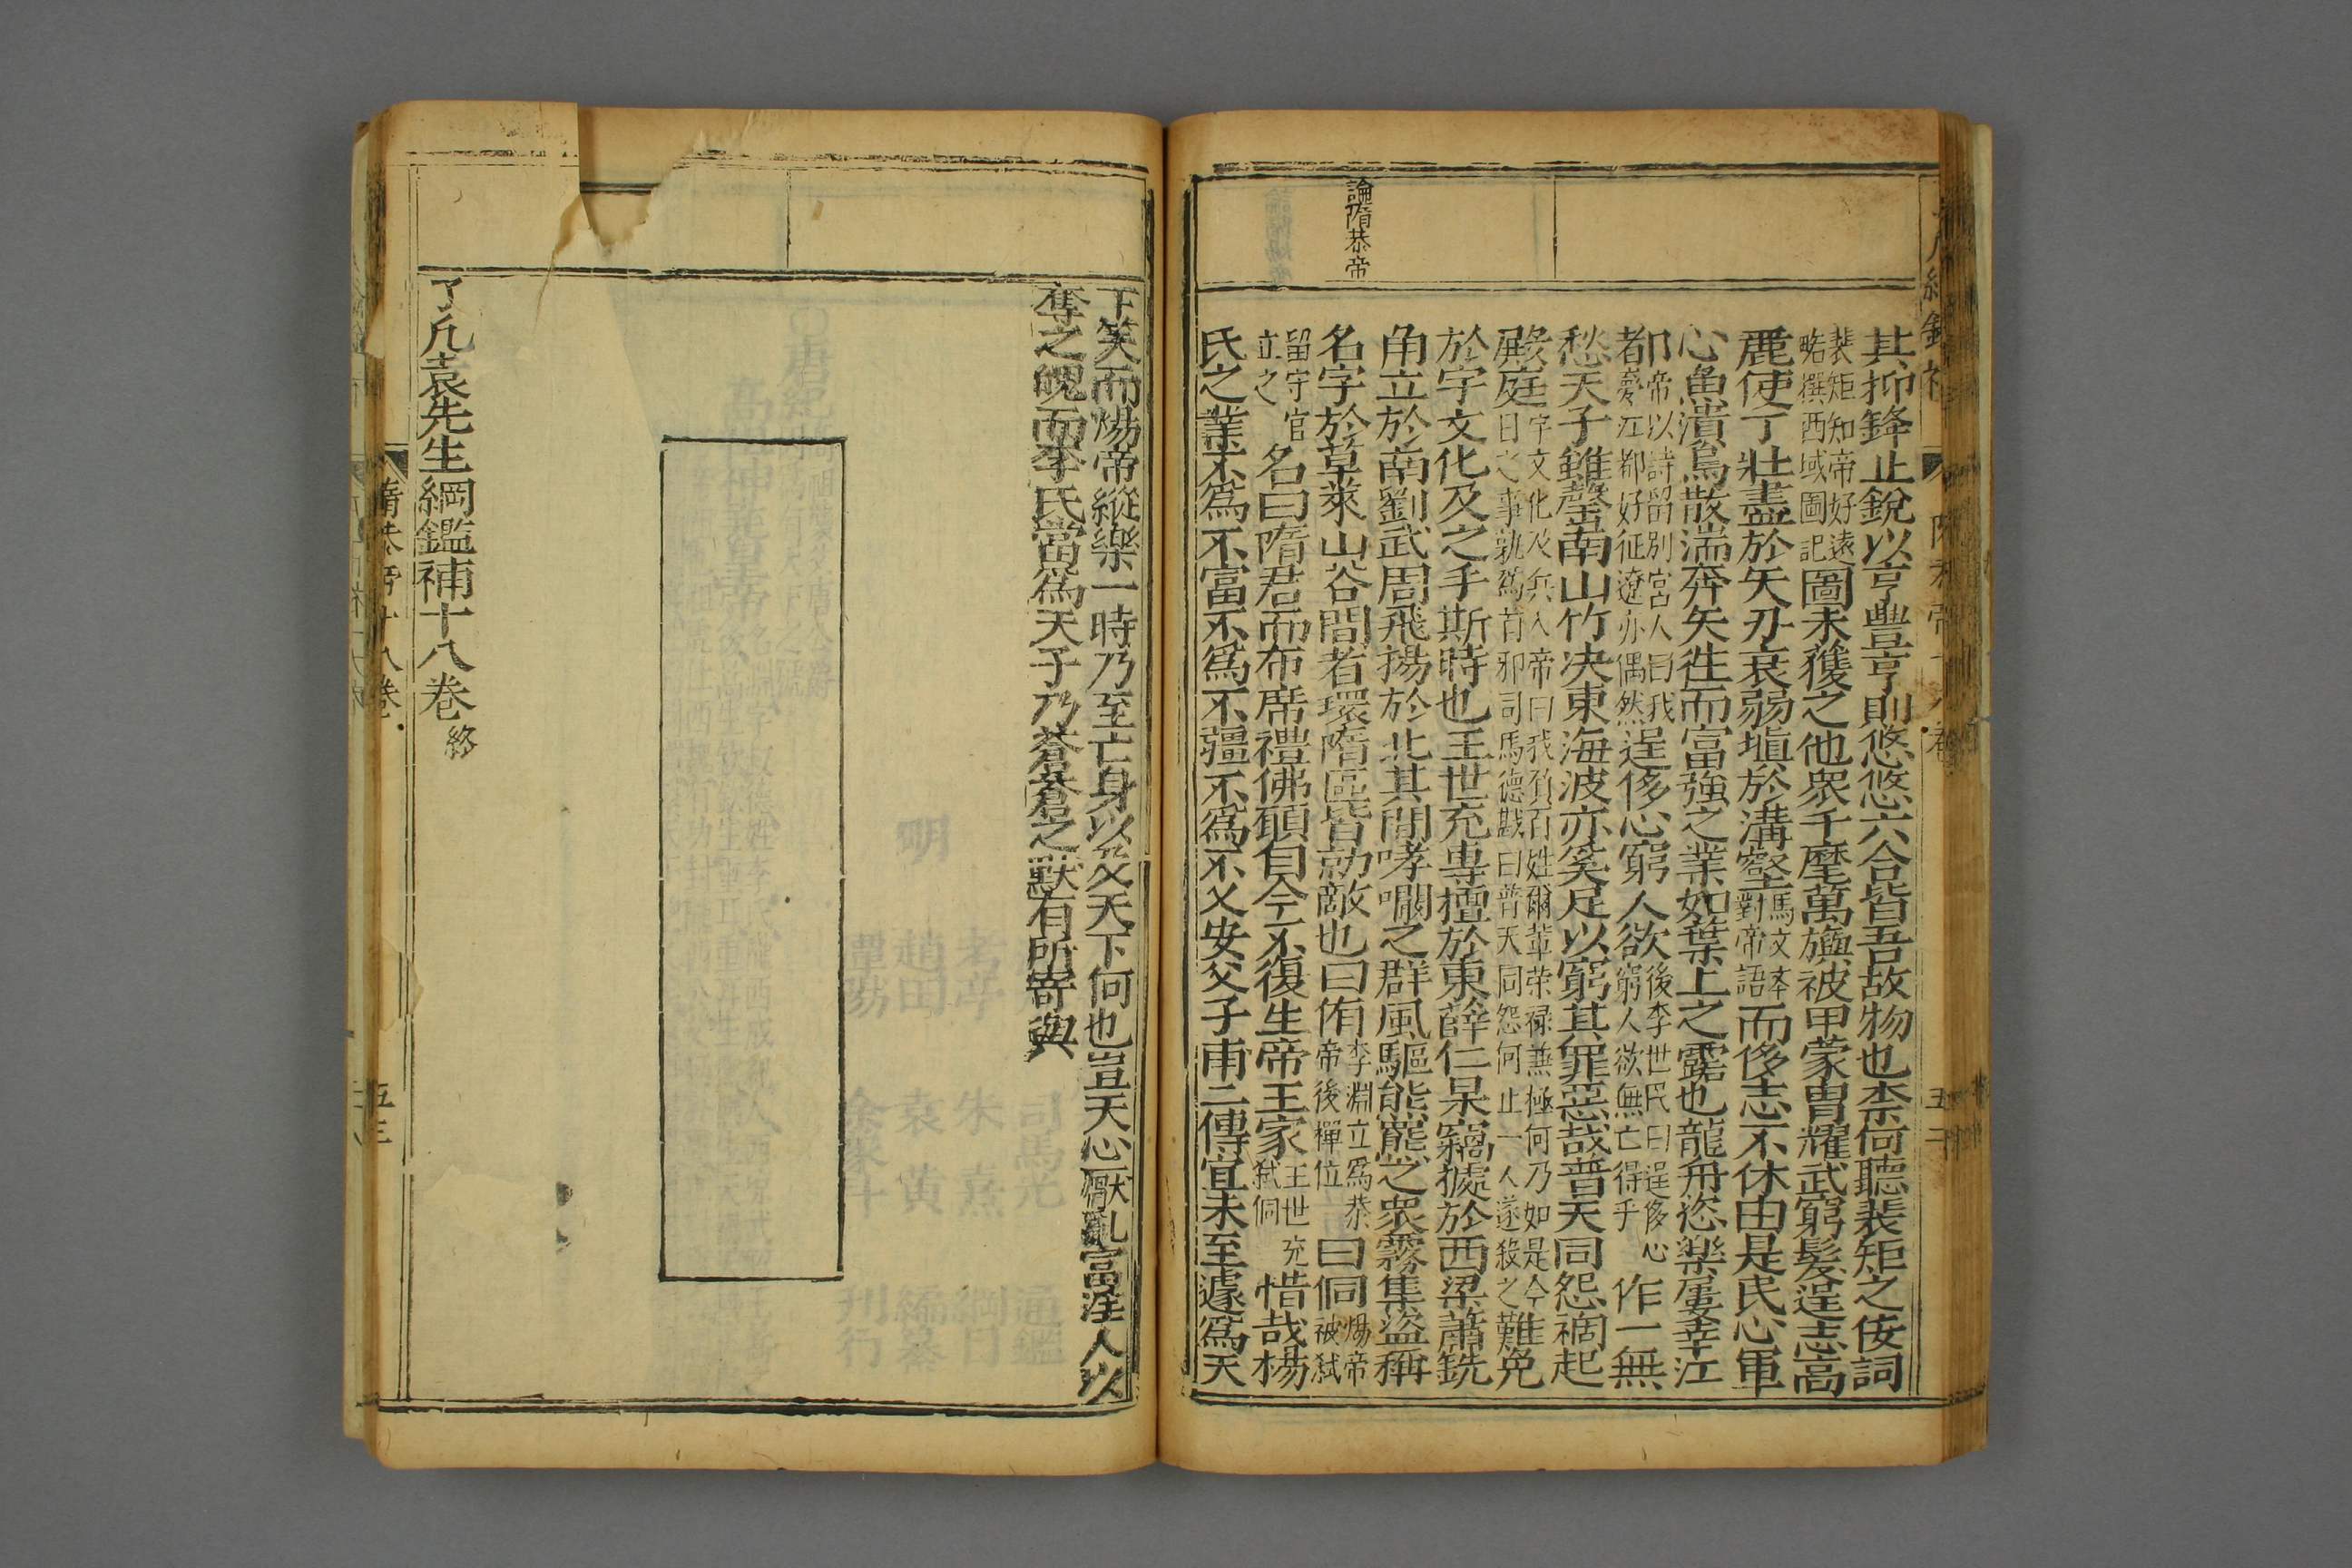 論隋恭帝
其抑鋒止銳以亨豐亨則悠悠六合皆吾故物也柰何聽裴矩之侫詞
裴矩知帝好遠略撰西域圖記圖未獲之他衆千麾萬旟被甲蒙冑耀武窮髮逞志高
麗使丁壯盡於矢刃衰弱塡於溝壑馬文本對帝語而侈志不休由是民心軍
心魚潰鳥散湍奔矢徃而富強之業如葉上之露也龍舟恣樂屢幸江
都帝以詩留別宮人曰我夢江都好征遼亦偶然逞侈心窮人欲後李世民曰逞侈心窮人欲無亡得乎作一無
愁天子雖罄南山竹决東海波亦奚足以窮其罪惡哉普天同怨禍起
殿庭宇文化及兵入帝曰我負百姓爾輩荣禄兼極何乃如是今日之事孰爲首邪司馬德戡曰普天同怨何止一人遂殺之難免
於宇文化及之手斯時也王世充專擅於東薛仁杲竊據於西梁蕭銑
角立於南劉武周飛揚於北其間哮嚪之群風驅熊羆之衆霧集盜稱
名字於草萊山谷間者環隋區皆勍敵也曰侑李淵立爲恭帝後禪位曰侗煬帝被弑
留守官立之名曰隋君而布席禮佛願自今不復生帝王家王世充弑侗惜哉楊
氏之業不爲不富不爲不疆不爲不乂安父子甫二傳宜未至遽爲天
下笑而煬帝縱樂一時乃至亡身以及天下何也豈天心厭亂富淫人以
奪之魄而李氏當爲天子乃蒼蒼之獸有所寄與
了凡袁先生綱鑑補十八卷 終
隋恭帝十八卷
五三